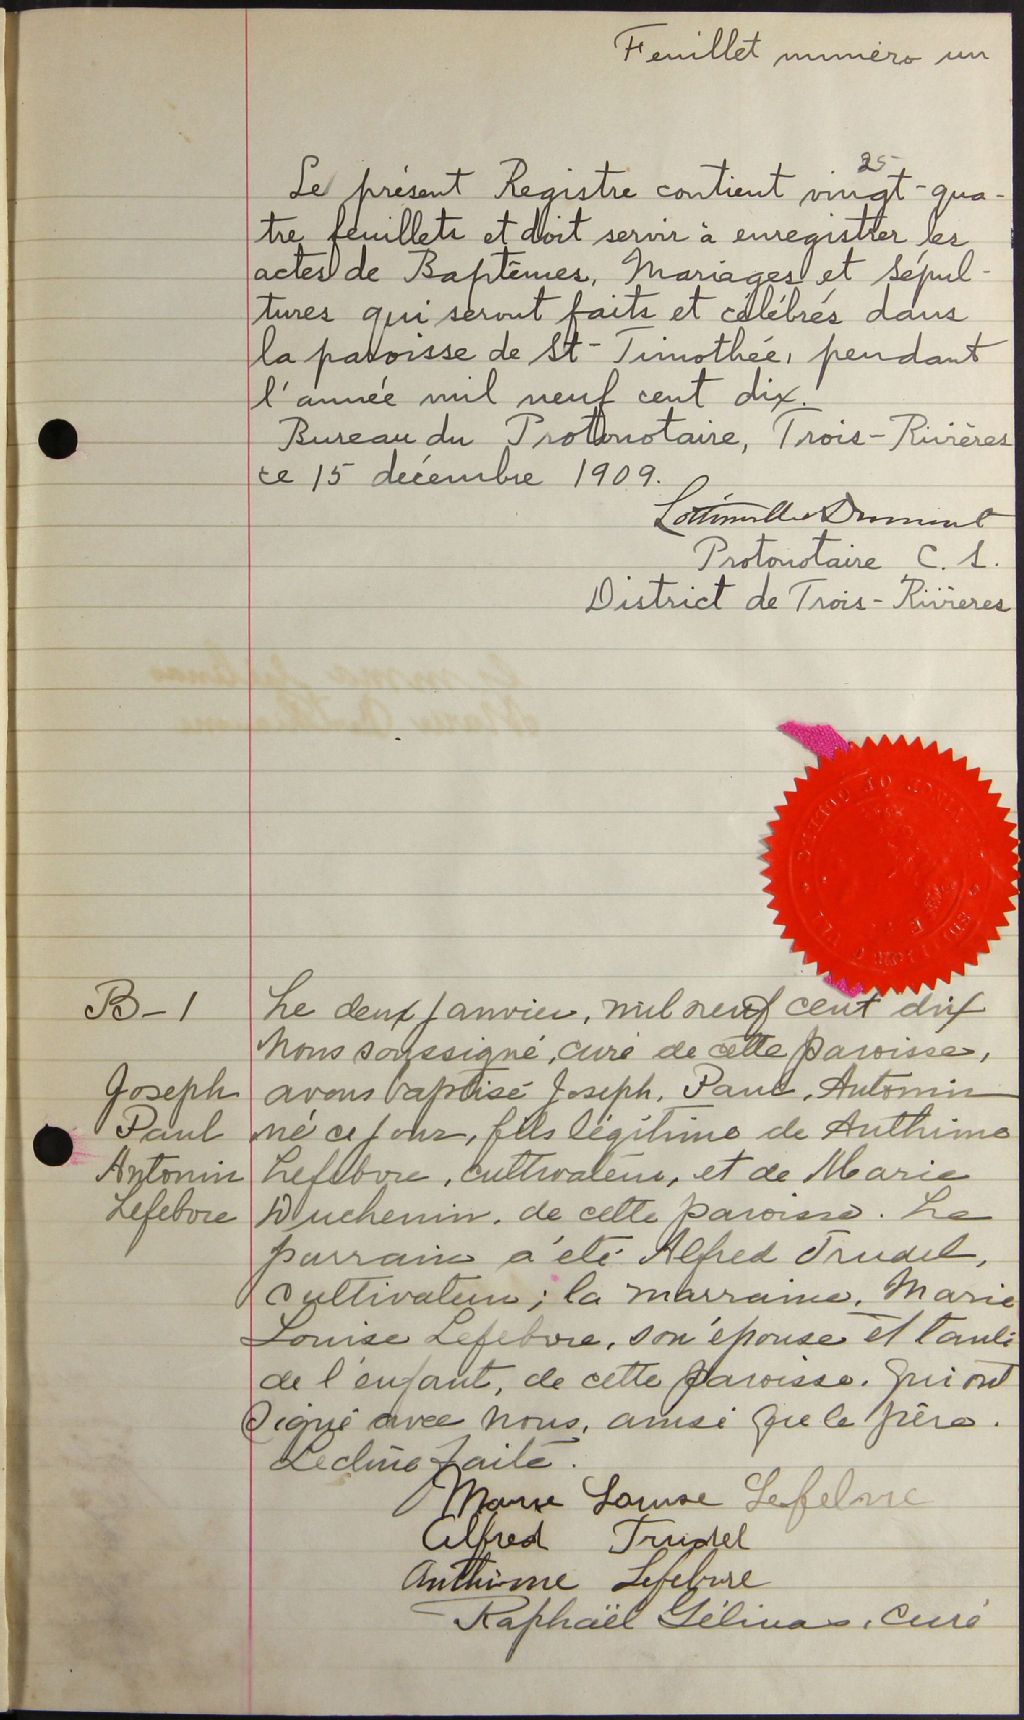 Feuillet numéro un
25
Le présent Registre contient vingt-qua-
tre feuillets et doit servir à enregistrer les
actes de Baptêmes, Mariages et Sépul-
tures qui seront faits et célébrés dans
la paroisse de St-Timothée, pendant
l'année mil neuf cent dix.
Bureau du Protonotaire, Trois-Rivières
ce 15 décembre 1909.
Protonotaire C. S.
District de Trois-Rivières
B-1
Joseph
Paul
Antonin
Lefebvre
Le deux janvier, mil neuf cent dix
Nous soussigné, curé de cette paroisse,
avons baptisé Joseph, Paul, Antonin
né ce jour, fils légitime de Anthime
Lefebvre, cultivateur, et de Marie
Duchemin, de cette paroisse. Le
parrain a été Alfred Trudel,
cultivateur; la marraine, Marie
Louise Lefebvre, son épouse et tante
de l'enfant, de cette paroisse. Qui ont
signé avec nous, ainsi que le père.
Lecture faite.
Marie Louise Lefebvre
Alfred Trudel
Anthime Lefebvre
Raphaël Gélinas, curé